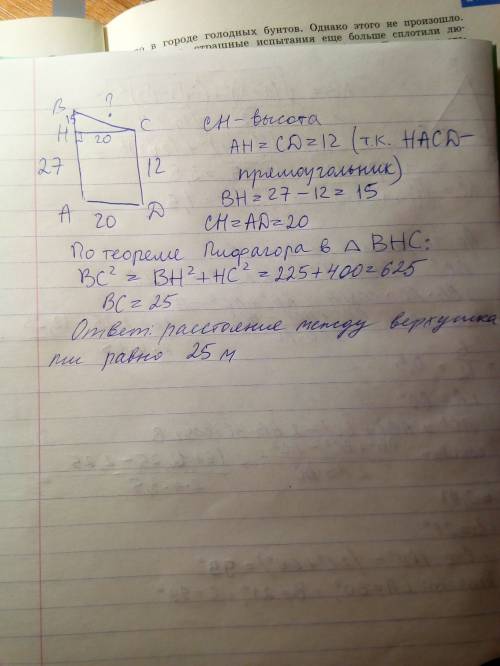 в городе голодных бунтов. Однако этого не произошло.
страшные испытания еще больше сплотили лю-
B ?
15
H 20 C
27 12
A 20 D
CH - высота
AH = CD = 12 (т.к. HACD -
прямоугольник)
BH = 27 - 12 = 15
CH = AD = 20
По теореме Пифагора в △ BHC:
BC² = BH² + HC² = 225 + 400 = 625
BC = 25
Ответ: расстояние между верхушка
ми равно 25 м